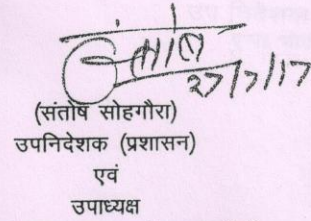 संतोष
27/7/17
(संतोष सोहगौरा)
उपनिदेशक (प्रशासन)
एवं
उपाध्यक्ष